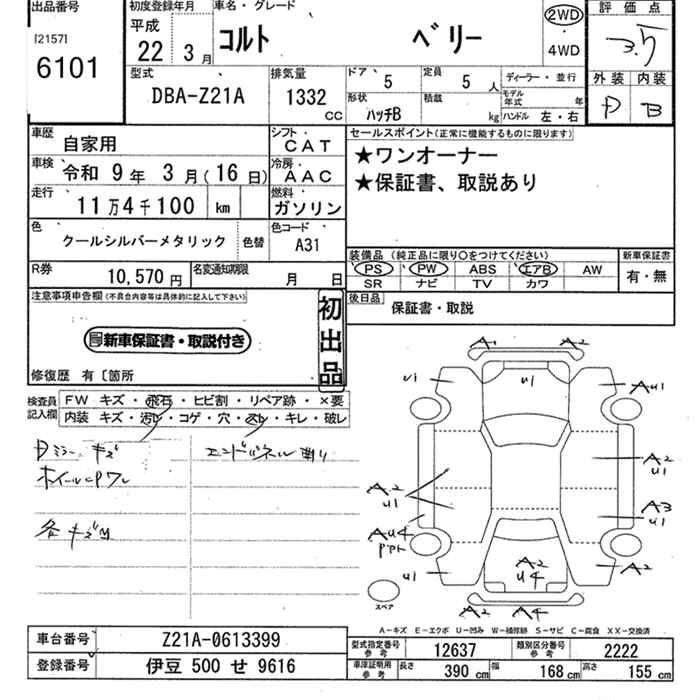 出品番号
[2157]
6101
初度登録年月
平成
22 3月
車名・グレード
コルト ベリー
2WD
・
4WD
評価点
3.5
外装 内装
D B
型式
DBA-Z21A
排気量
1332 CC
ドア 5
定員 5 人
形状
ハッチB
積載 kg
ディーラー・並行
モデル年式 年
ハンドル 左・右
車歴
自家用
シフト
CAT
車検
令和 9年 3月(16日)
冷房
AAC
走行
11万4千100 km
燃料
ガソリン
色
クールシルバーメタリック
色替
色コード
A31
R券
10,570円
名変通知期限
月 日
セールスポイント(正常に機能するものに限ります)
★ワンオーナー
★保証書、取説あり
装備品 (純正品に限り○をつけてください)
PS PW ABS エアB AW
SR ナビ TV カワ
新車保証書
有・無
後日品
保証書・取説
注意事項申告欄(不具合内容等は具体的に記入して下さい)
新車保証書・取説付き
初出品
修復歴 有〔箇所
検査員記入欄
FW キズ・飛石・ヒビ割・リペア跡・×要
内装 キズ・汚レ・コゲ・穴・スレ・キレ・破レ
Dミラー キズ
エンドパネル 割り
ホイールCPワレ
各キズM
A1 A2
U1 U1
A U1
A2 U1
A2 U1
A3 U1
A U4
U1
A2 U4
A2
A2 A4
スペア
A-キズ E-エクボ U-凹み W-補修跡 S-サビ C-腐食 XX-交換済
車台番号
Z21A-0613399
登録番号
伊豆 500 せ 9616
型式指定番号 参考
12637
類別区分番号 参考
2222
車庫証明用 参考
長さ 390 cm
幅 168 cm
高さ 155 cm